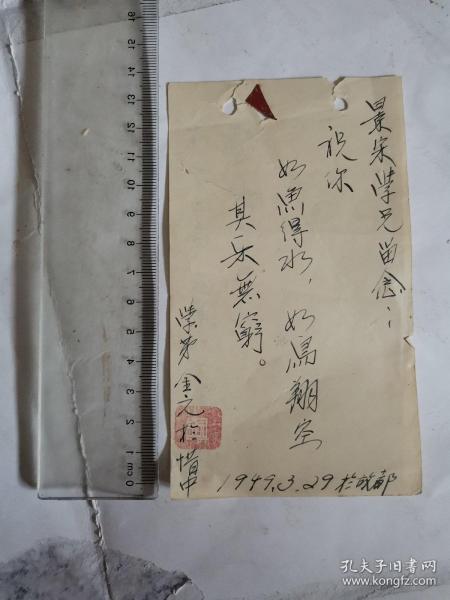 景宋学兄留念：
祝你
如鱼得水，如鸟翔空
其乐無窮。
学弟 金元 於 惜中
1949.3.29 於成都
cm 0 1 2 3 4 5 6 7 8 9 10 11 12 13 14 15 16
孔夫子旧书网
www.kongfz.com